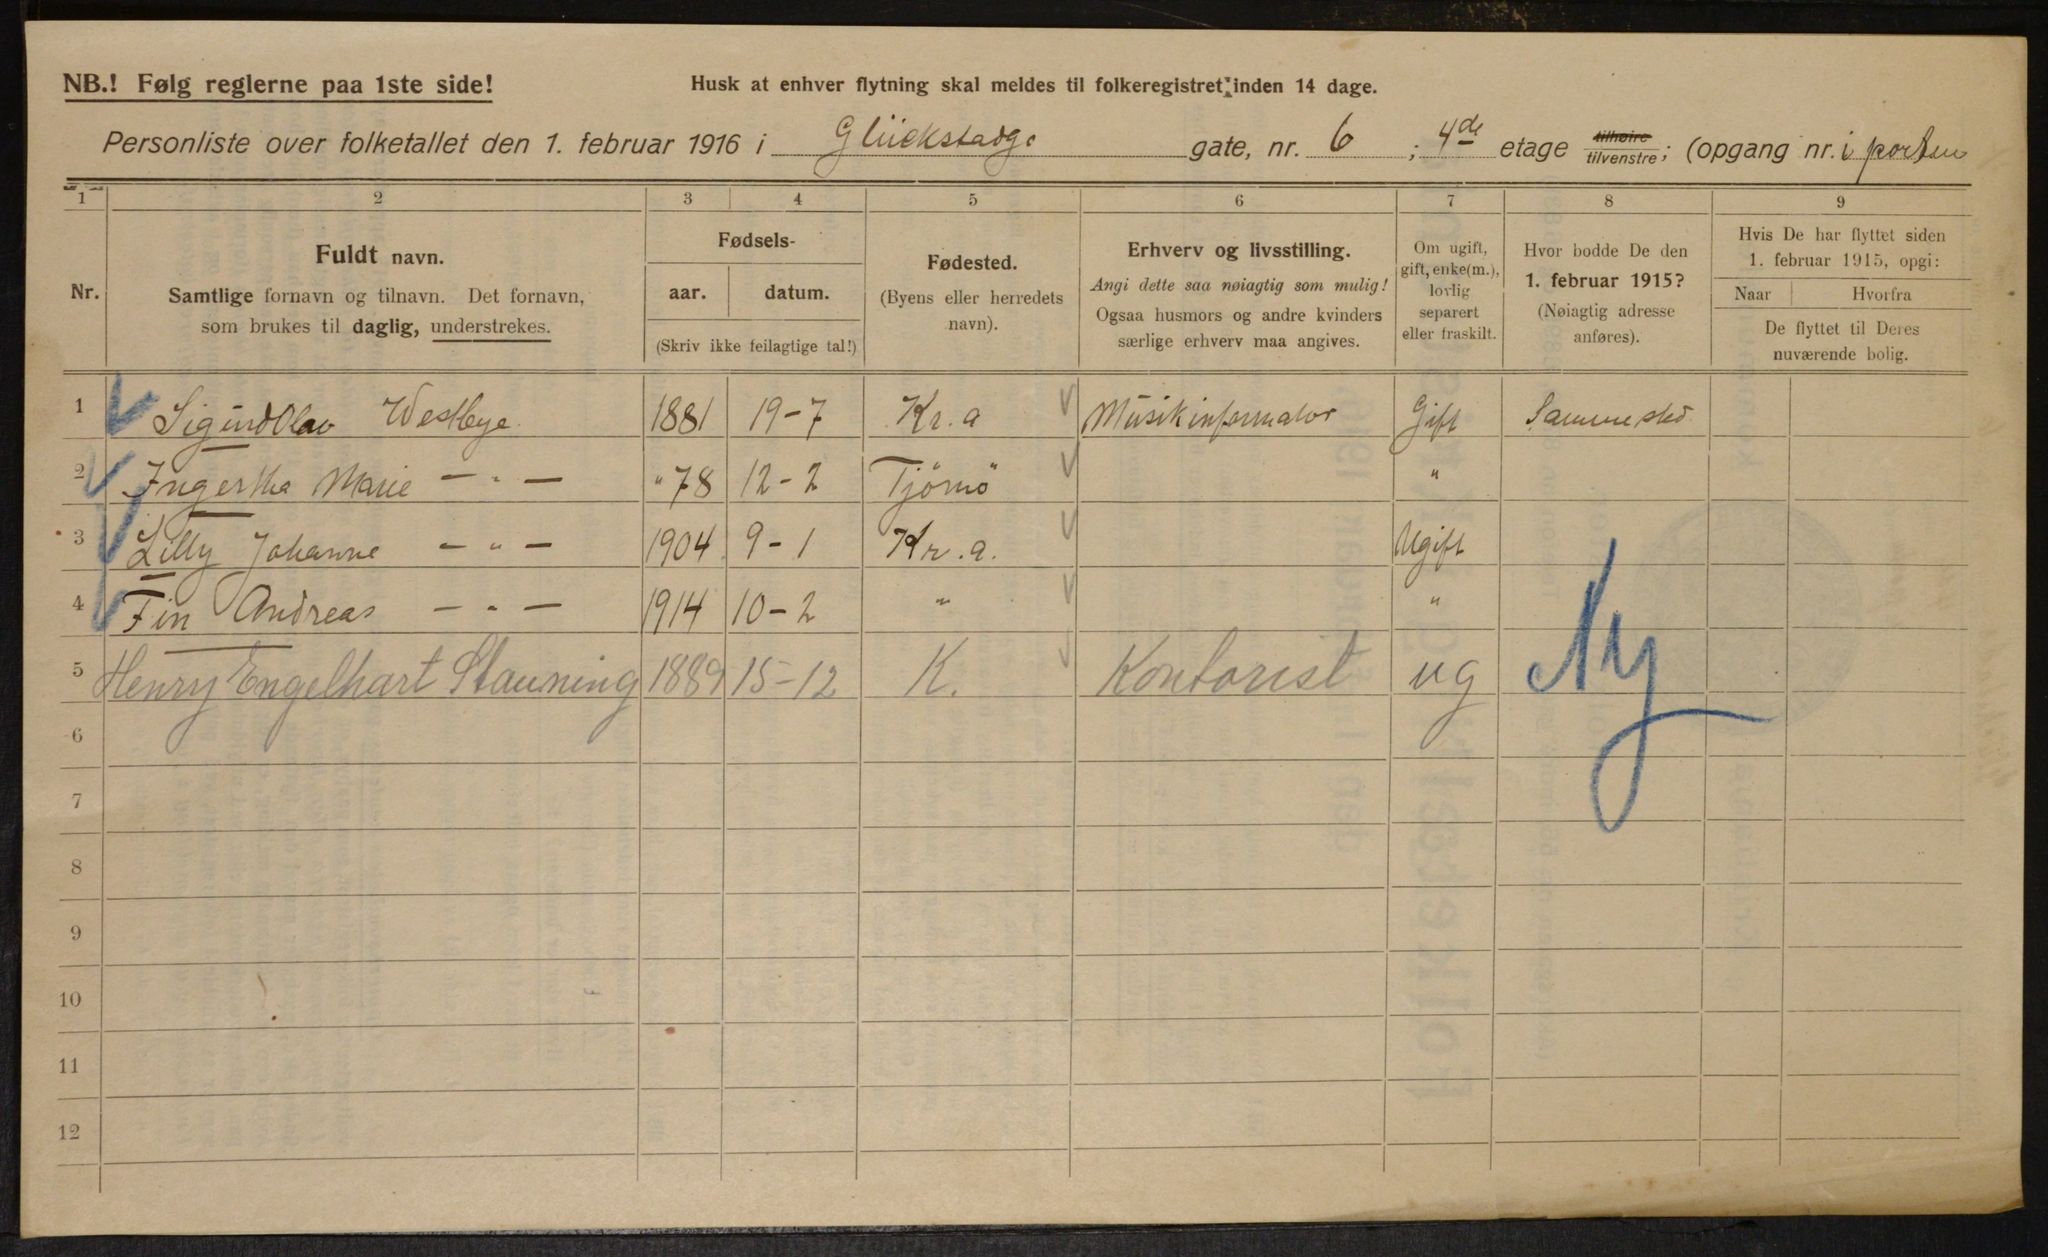 NB.! Følg reglerne paa 1ste side!
Husk at enhver flytning skal meldes til folkeregistret inden 14 dage.
Personliste over folketallet den 1. februar 1916 i Glückstadg. gate, nr. 6 ; 4de etage tilhøire tilvenstre; (opgang nr. i porten
1 2 3 4 5 6 7 8 9
Nr.
Fuldt navn.
Samtlige fornavn og tilnavn. Det fornavn,
som brukes til daglig, understrekes.
Fødsels-
aar. datum.
(Skriv ikke feilagtige tal!)
Fødested.
(Byens eller herredets
navn).
Erhverv og livsstilling.
Angi dette saa nøiagtig som mulig!
Ogsaa husmors og andre kvinders
særlige erhverv maa angives.
Om ugift,
gift, enke(m.),
lovlig
separert
eller fraskilt.
Hvor bodde De den
1. februar 1915?
(Nøiagtig adresse
anføres).
Hvis De har flyttet siden
1. februar 1915, opgi:
Naar Hvorfra
De flyttet til Deres
nuværende bolig.
1 Sigurd Olav Westbye. 1881 19-7 Kr.a Musikinformator Gift Sammested
2 Ingertha Marie — " — " 78 12-2 Tjömö "
3 Lilly Johanne — " — 1904 9-1 Kr.a. Ugift
4 Fin Andreas — " — 1914 10-2 " "
5 Henry Engelhart Stauning 1889 15-12 K. Kontorist ug
Ny
6
7
8
9
10
11
12